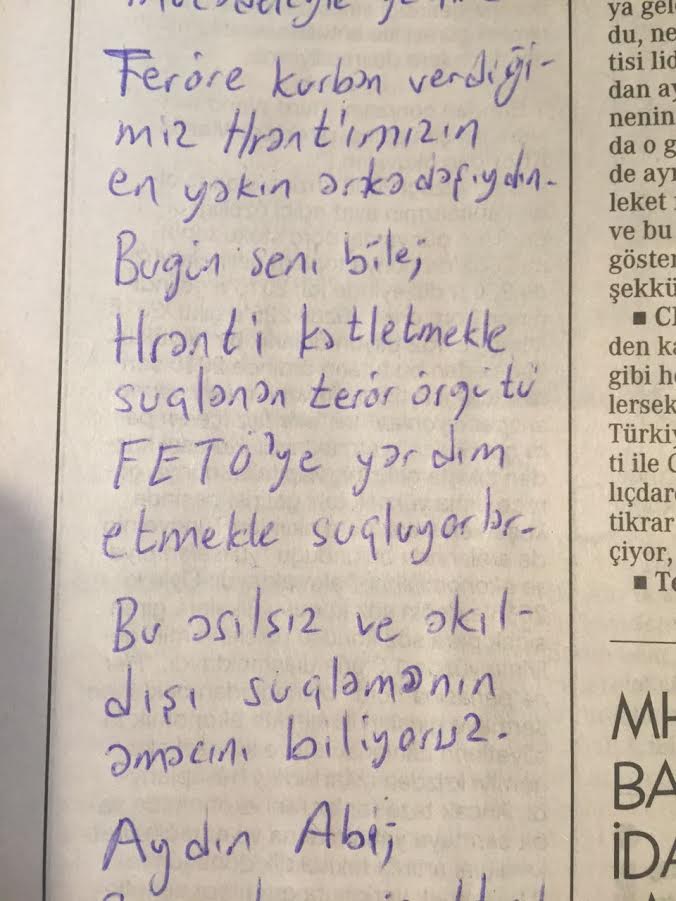 Teröre kurban verdiği-
miz Hrant'ımızın
en yakın arkadaşıydın.
Bugün seni bile,
Hrant'ı katletmekle
suçlanan terör örgütü
FETÖ'ye yardım
etmekle suçluyorlar.
Bu asılsız ve akıl-
dışı suçlamanın
amacını biliyoruz.
Aydın Abi,
ya gel
du, ne
tisi lid
dan ay
nenin
da o g
de ayr
leket
ve bu
göster
şekkü
■ C
den ka
gibi h
lersek
Türkiy
ti ile
lıçdar
tikrar
çiyor,
■ Te
MH
BA
İDA